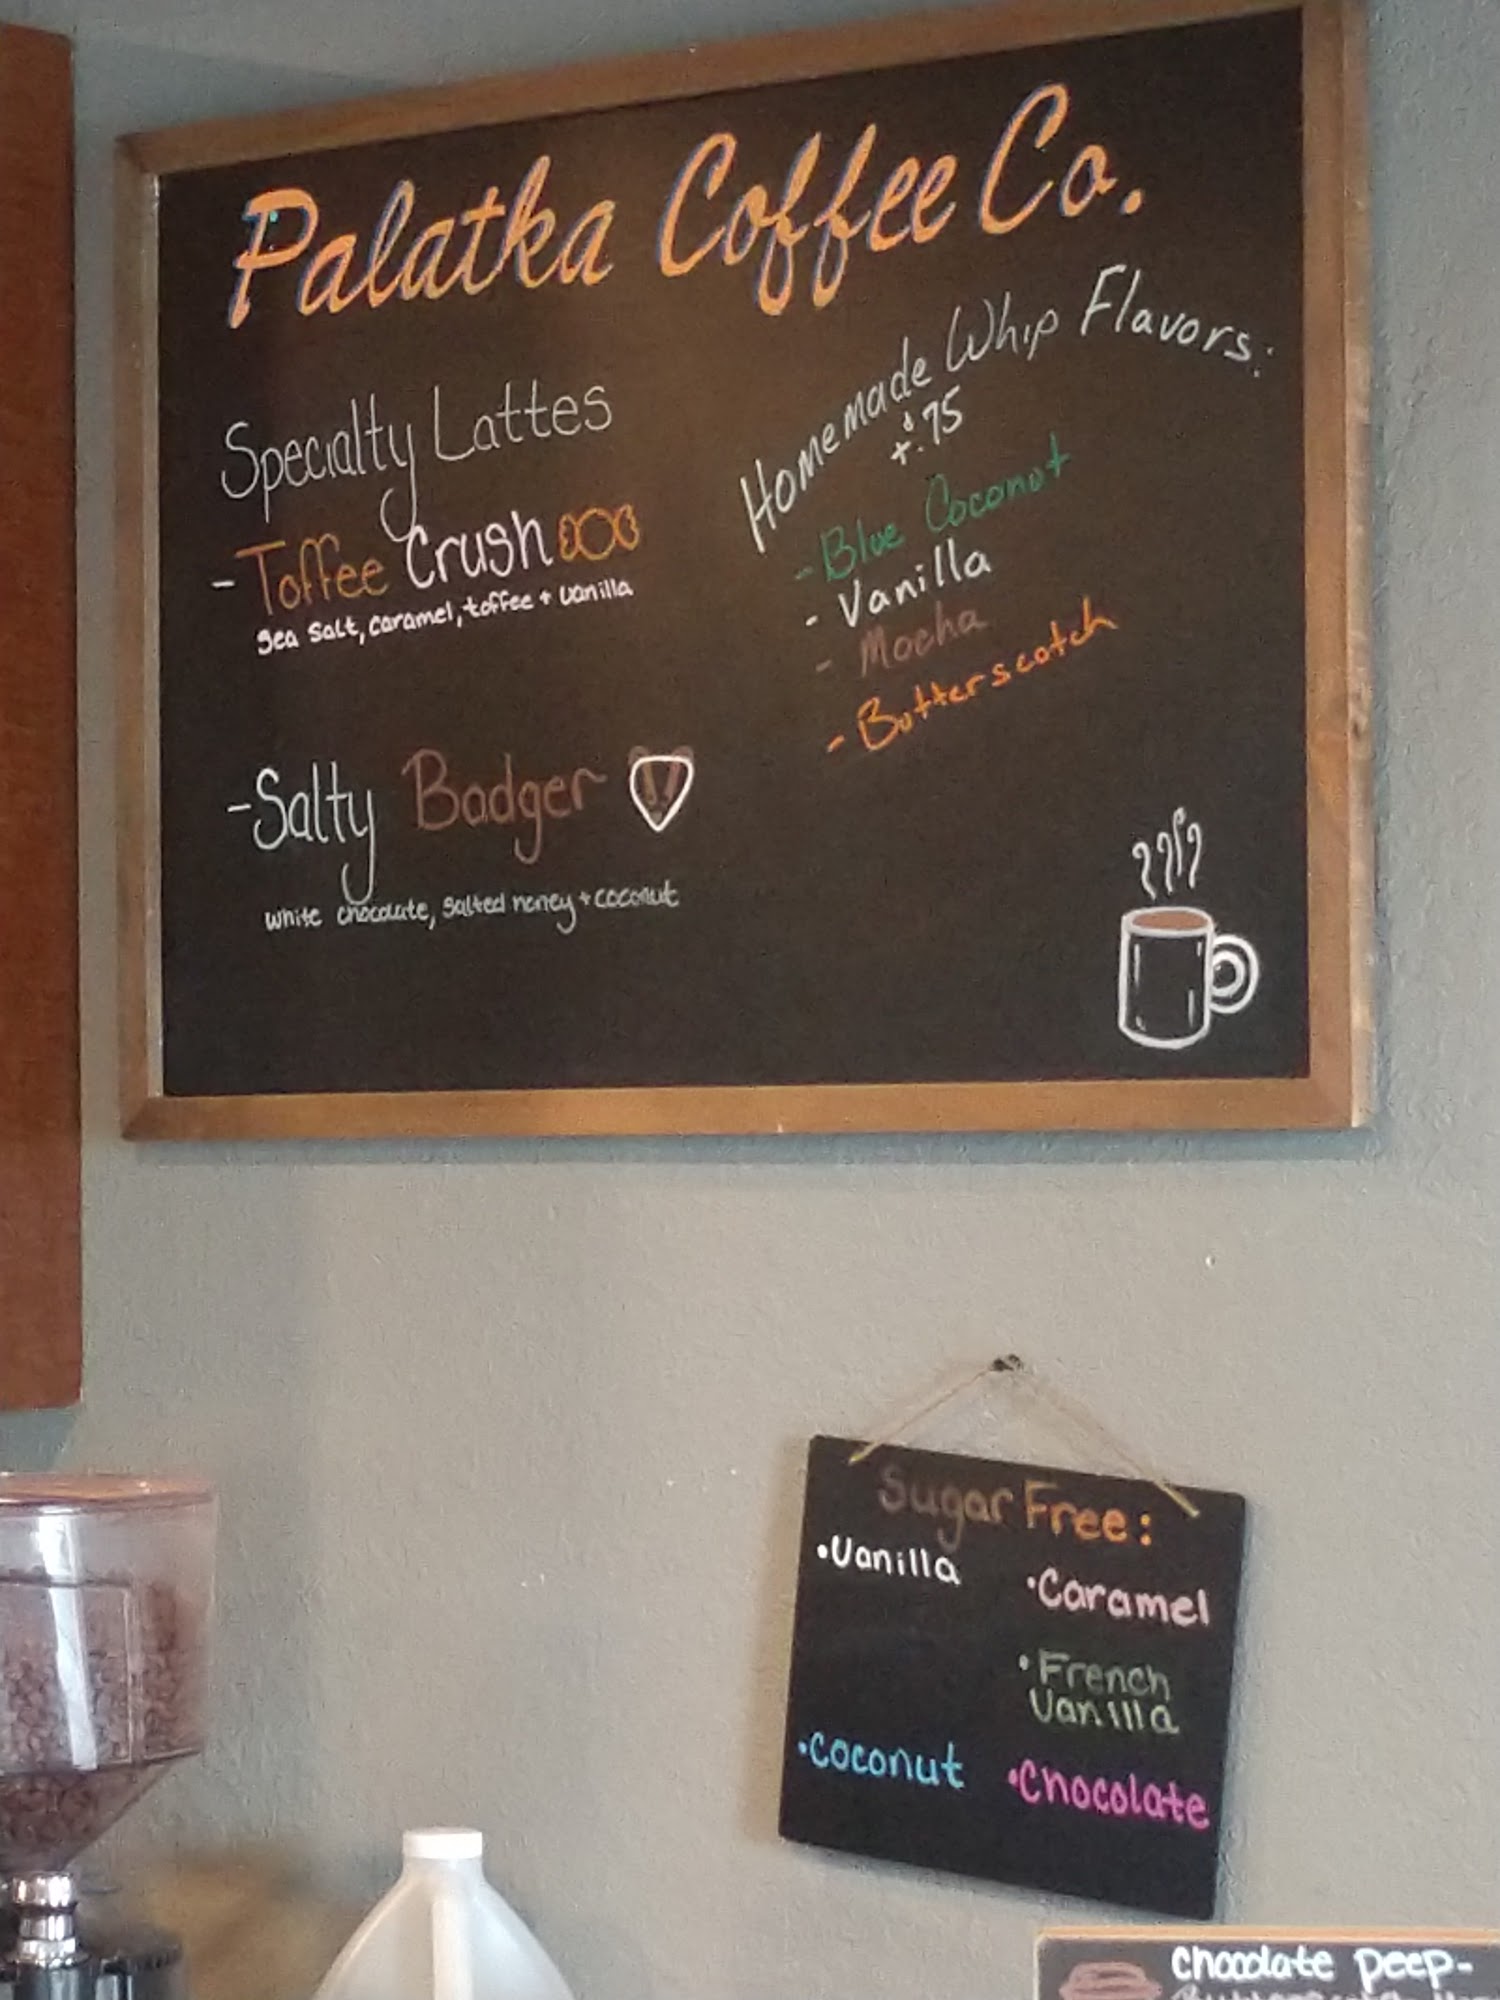 Palatka Coffee Co.
Specialty Lattes
- Toffee Crush
Sea Salt, caramel, toffee + vanilla
- Salty Badger
white chocolate, salted honey + coconut
Homemade Whip Flavors:
+$.75
- Blue Coconut
- Vanilla
- Mocha
- Butterscotch
Sugar Free:
•Vanilla
•Caramel
•French
Vanilla
•Coconut
•Chocolate
Chocolate peep-